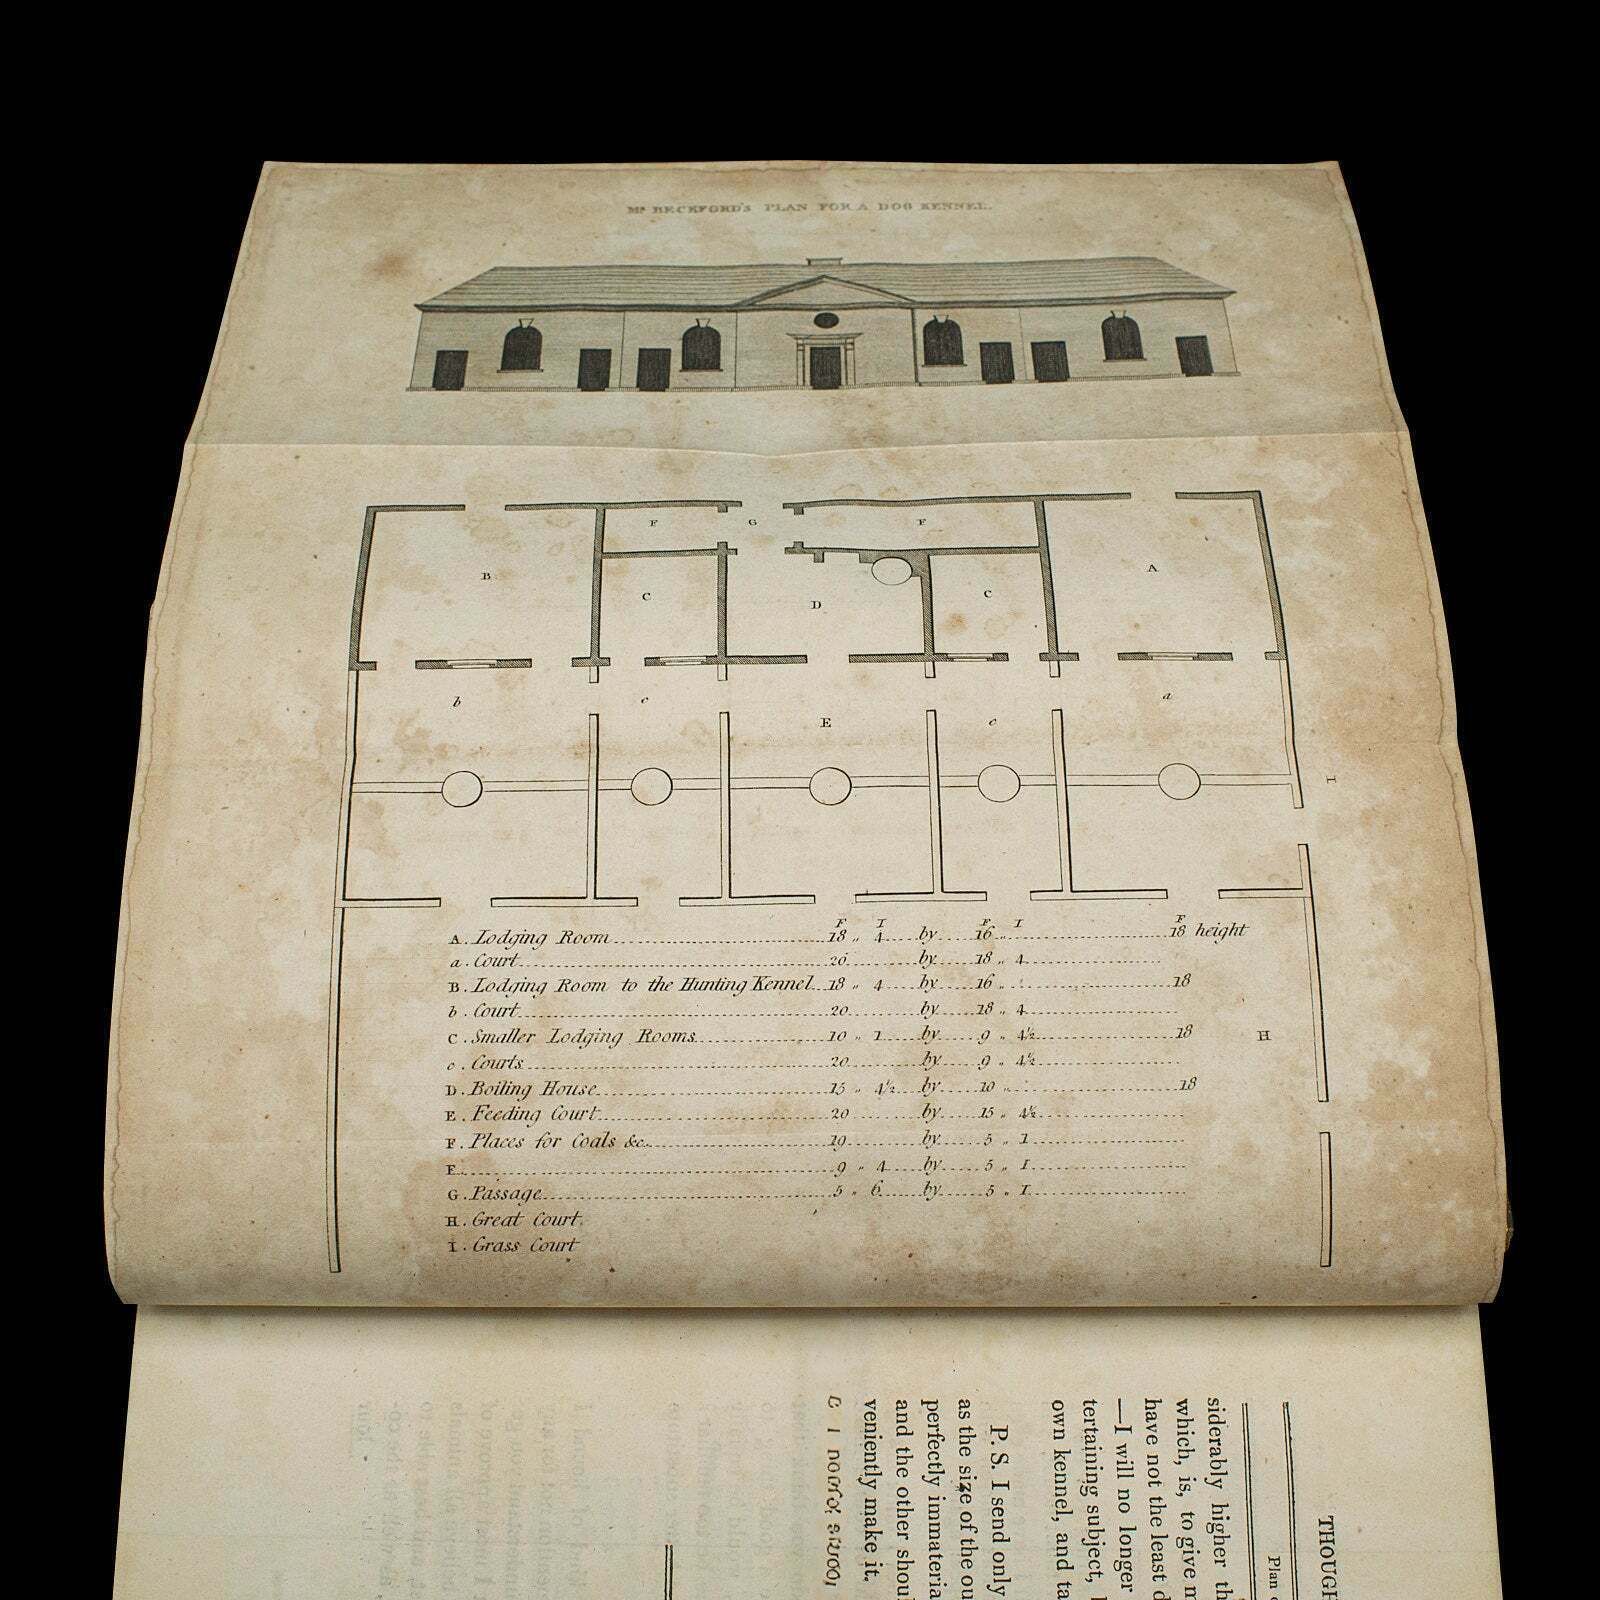 Mr. BECKFORD'S PLAN FOR A DOG KENNEL.
F G F
B A
C C
D
b c E c a
I
F I F I F
A. Lodging Room 18 „ 4 by 16 „ 18 height
a. Court 20 by 18 „ 4
B. Lodging Room to the Hunting Kennel 18 „ 4 by 16 „ 18
b. Court 20 by 18 „ 4
C. Smaller Lodging Rooms 10 „ 1 by 9 „ 4½ 18
c. Courts 20 by 9 „ 4½
D. Boiling House 15 „ 4½ by 10 „ 18
E. Feeding Court 20 by 15 „ 4½
F. Places for Coals &c. 19 by 5 „ 1
F. 9 „ 4 by 5 „ 1
G. Passage 5 „ 6 by 5 „ 1
H. Great Court.
I. Grass Court
H
THOUGH
Plan
siderably higher th
which, is, to give m
have not the least d
—I will no longer
tertaining subject,
own kennel, and ta
P. S. I send only
as the size of the ou
perfectly immateria
and the other shoul
veniently make it.